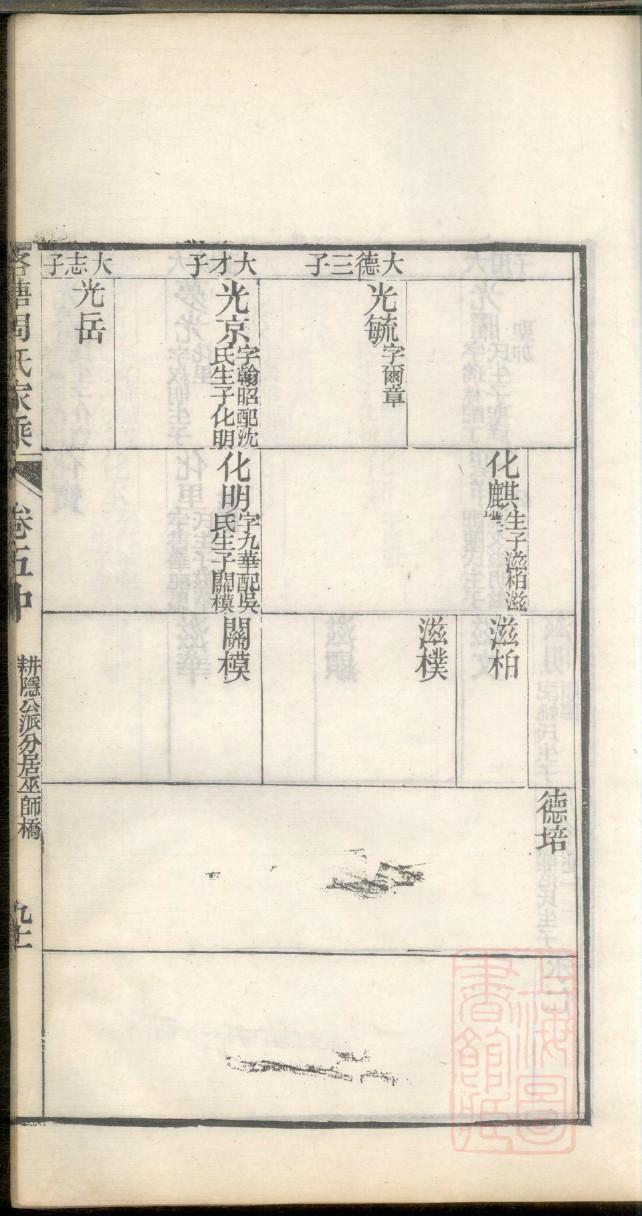 大德三子
大才子
大志子
光毓字爾章
光京字翰昭配沈
氏生子化明
光岳
化麒生子滋柏滋
化明字九華配吳
氏生子關模
滋柏
滋樸
關模
德培
周氏家乘
卷五中
耕隱公派分居巫師橋